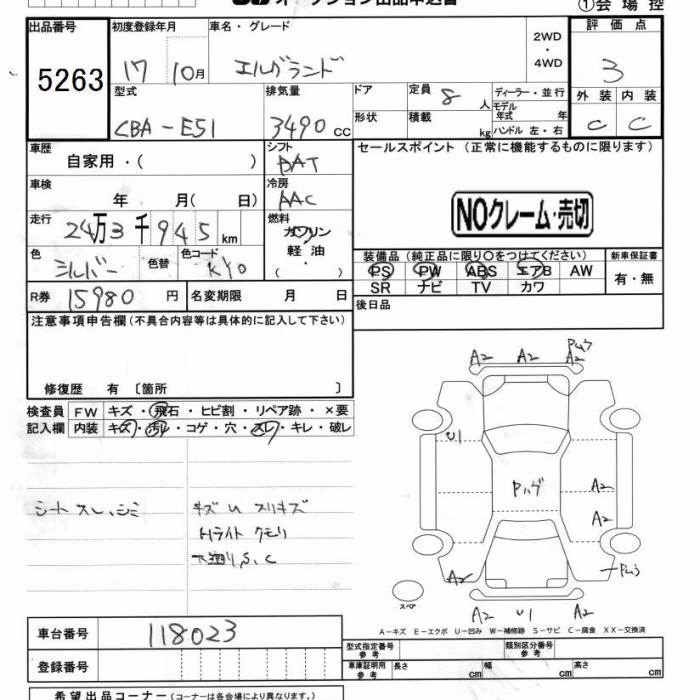 ①会場控
出品番号 初度登録年月 車名・グレード 2WD・4WD 評価点
5263 17 10月 エルグランド 3
型式 排気量 ドア 定員 8人 ディーラー・並行 外装 内装
CBA-E51 3490cc 形状 積載 kg モデル年式 年 ハンドル 左・右 C C
車歴 シフト セールスポイント(正常に機能するものに限ります)
自家用・( ) DAT
車検 冷房
年 月( 日) AAC
走行 燃料 NOクレーム・売切
24万3千945km ガソリン
色 色替 色コード 軽油・ 装備品(純正品に限り○をつけてください) 新車保証書
シルバー KY0 ( ) PS PW ABS エアB AW 有・無
SR ナビ TV カワ
R券 15980円 名変期限 月 日 後日品
注意事項申告欄(不具合内容等は具体的に記入して下さい)
修復歴 有 〔箇所 〕
検査員 FW キズ・飛石・ヒビ割・リペア跡・×要
記入欄 内装 キズ・汚レ・コゲ・穴・スレ・キレ・破レ
シートスレ、シミ キズUスリキズ
ライトクモリ
下廻りS、C
A2 A2 A2
U1
Pハゲ
A2
A2
A2
スペア
A2 U1 A2
A-キズ E-エクボ U-凹み W-補修跡 S-サビ C-腐食 XX-交換済
車台番号 118023
型式指定番号 参考 類別区分番号 参考
登録番号 車庫証明用 参考 長さ cm 幅 cm 高さ cm
希望出品コーナー(コーナーは各会場により異なります。)